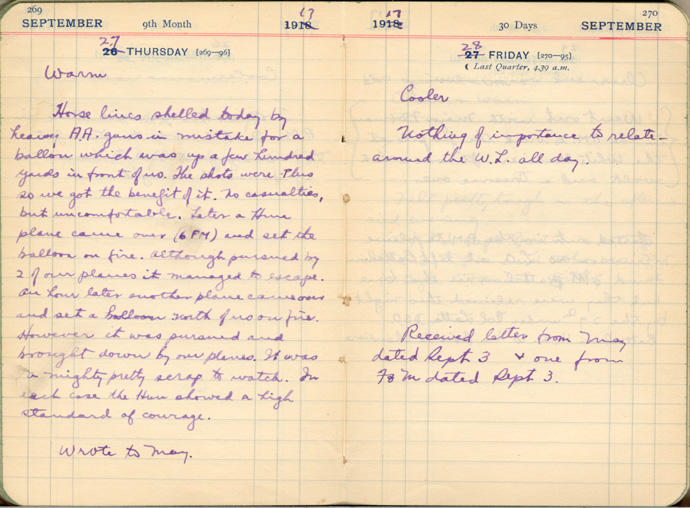 269
SEPTEMBER 9th Month 1918 17
27
26 THURSDAY [269—96]
Warm
Horse lines shelled today by
heavy A.A. guns in mistake for a
balloon which was up a few hundred
yards in front of us. The shots were plus
so we got the benefit of it. No casualties,
but uncomfortable. Later a Hun
plane came over (6 PM) and set the
balloon on fire. Although pursued by
2 of our planes it managed to escape.
An hour later another plane came over
and set a balloon north of us on fire.
However it was pursued and
brought down by our planes. It was
a mighty pretty scrap to watch. In
each case the Hun showed a high
standard of courage.
Wrote to May.
270
1918 17 30 Days SEPTEMBER
28
27 FRIDAY [270—95]
☾ Last Quarter, 4.39 a.m.
Cooler
Nothing of importance to relate—
around the W.L. all day.
Received letter from May
dated Sept 3 & one from
M dated Sept 3.